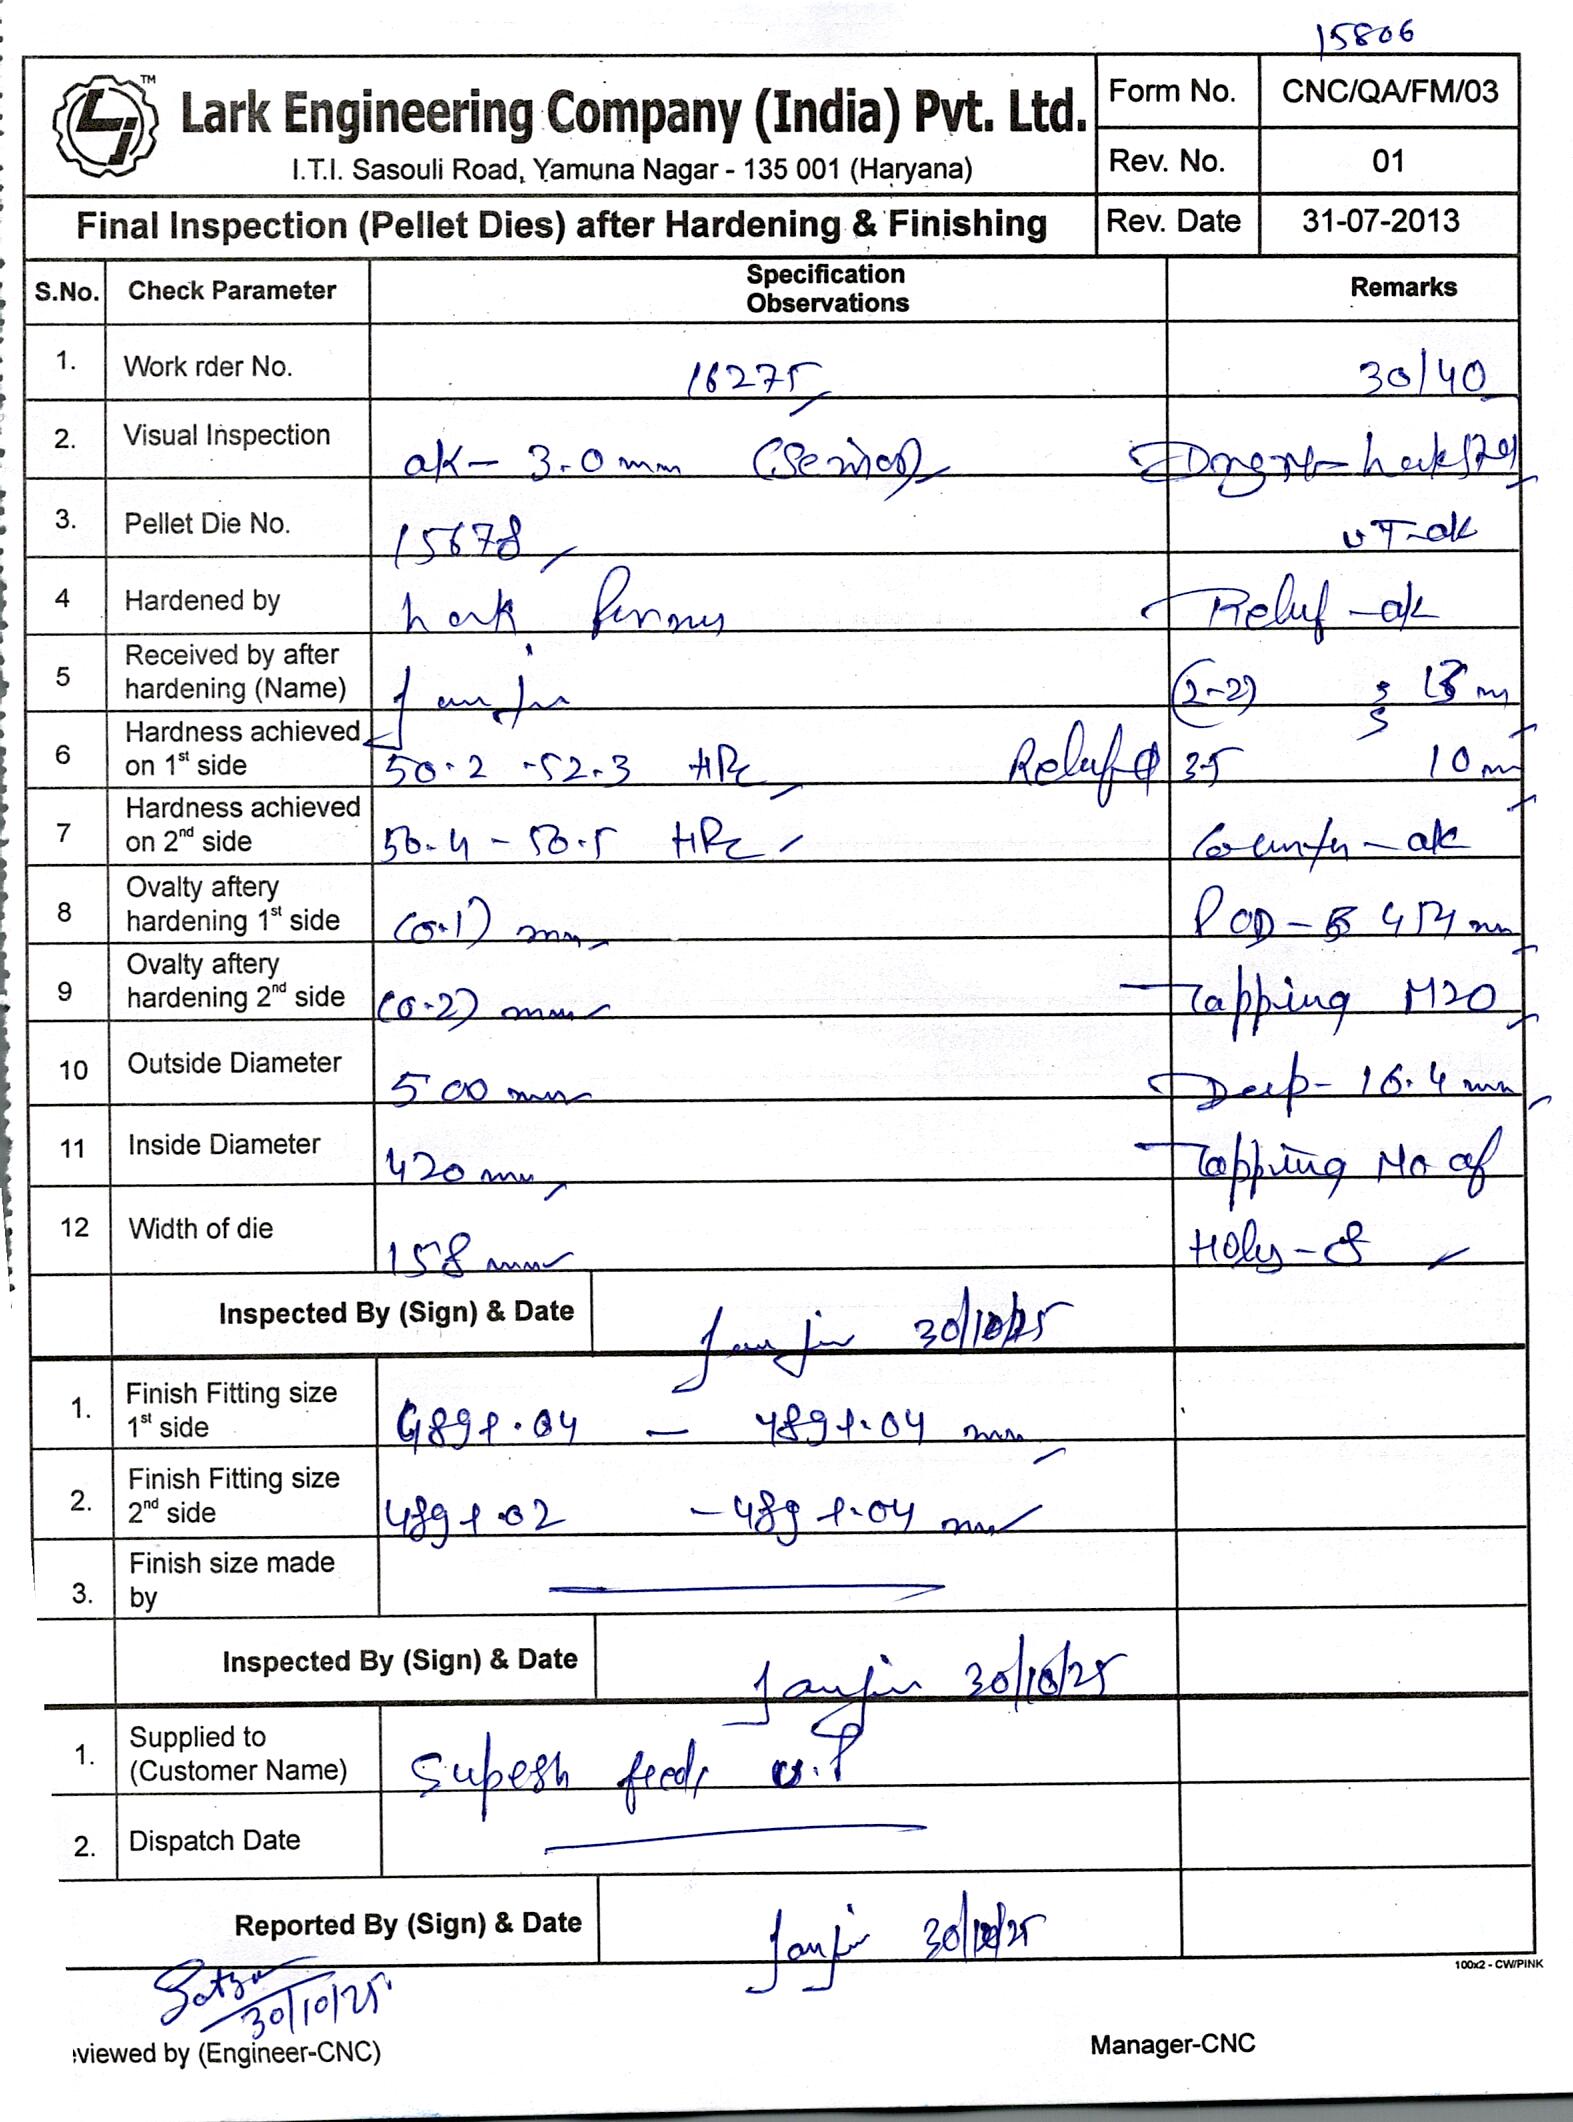 15806
Lark Engineering Company (India) Pvt. Ltd.
TM
I.T.I. Sasouli Road, Yamuna Nagar - 135 001 (Haryana)
Form No. CNC/QA/FM/03
Rev. No. 01
Final Inspection (Pellet Dies) after Hardening & Finishing
Rev. Date 31-07-2013
S.No. Check Parameter Specification Observations Remarks
1. Work rder No. 16275 30/40
2. Visual Inspection ok - 3.0 mm
3. Pellet Die No. 15678 UT-ok
4 Hardened by Lark
Relief - ok
5 Received by after hardening (Name)
(2-2)
6 Hardness achieved on 1st side 50.2 - 52.3 HRc Relief ϕ 3.5 10 mm
7 Hardness achieved on 2nd side 50.4 - 50.5 HRc Counter - ok
8 Ovalty aftery hardening 1st side (0.1) mm POD -
9 Ovalty aftery hardening 2nd side (0.2) mm Tapping M20
10 Outside Diameter 500 mm Deep - 16.4 mm
11 Inside Diameter 420 mm Tapping No of
12 Width of die 158 mm Holes - 8
Inspected By (Sign) & Date 30/10/25
1. Finish Fitting size 1st side 489+.04 - 489+.04 mm
2. Finish Fitting size 2nd side 489+.02 - 489+.04 mm
3. Finish size made by
Inspected By (Sign) & Date 30/10/25
1. Supplied to (Customer Name) feeds U.P
2. Dispatch Date
Reported By (Sign) & Date 30/10/25
100x2 - CW/PINK
30/10/25
eviewed by (Engineer-CNC) Manager-CNC